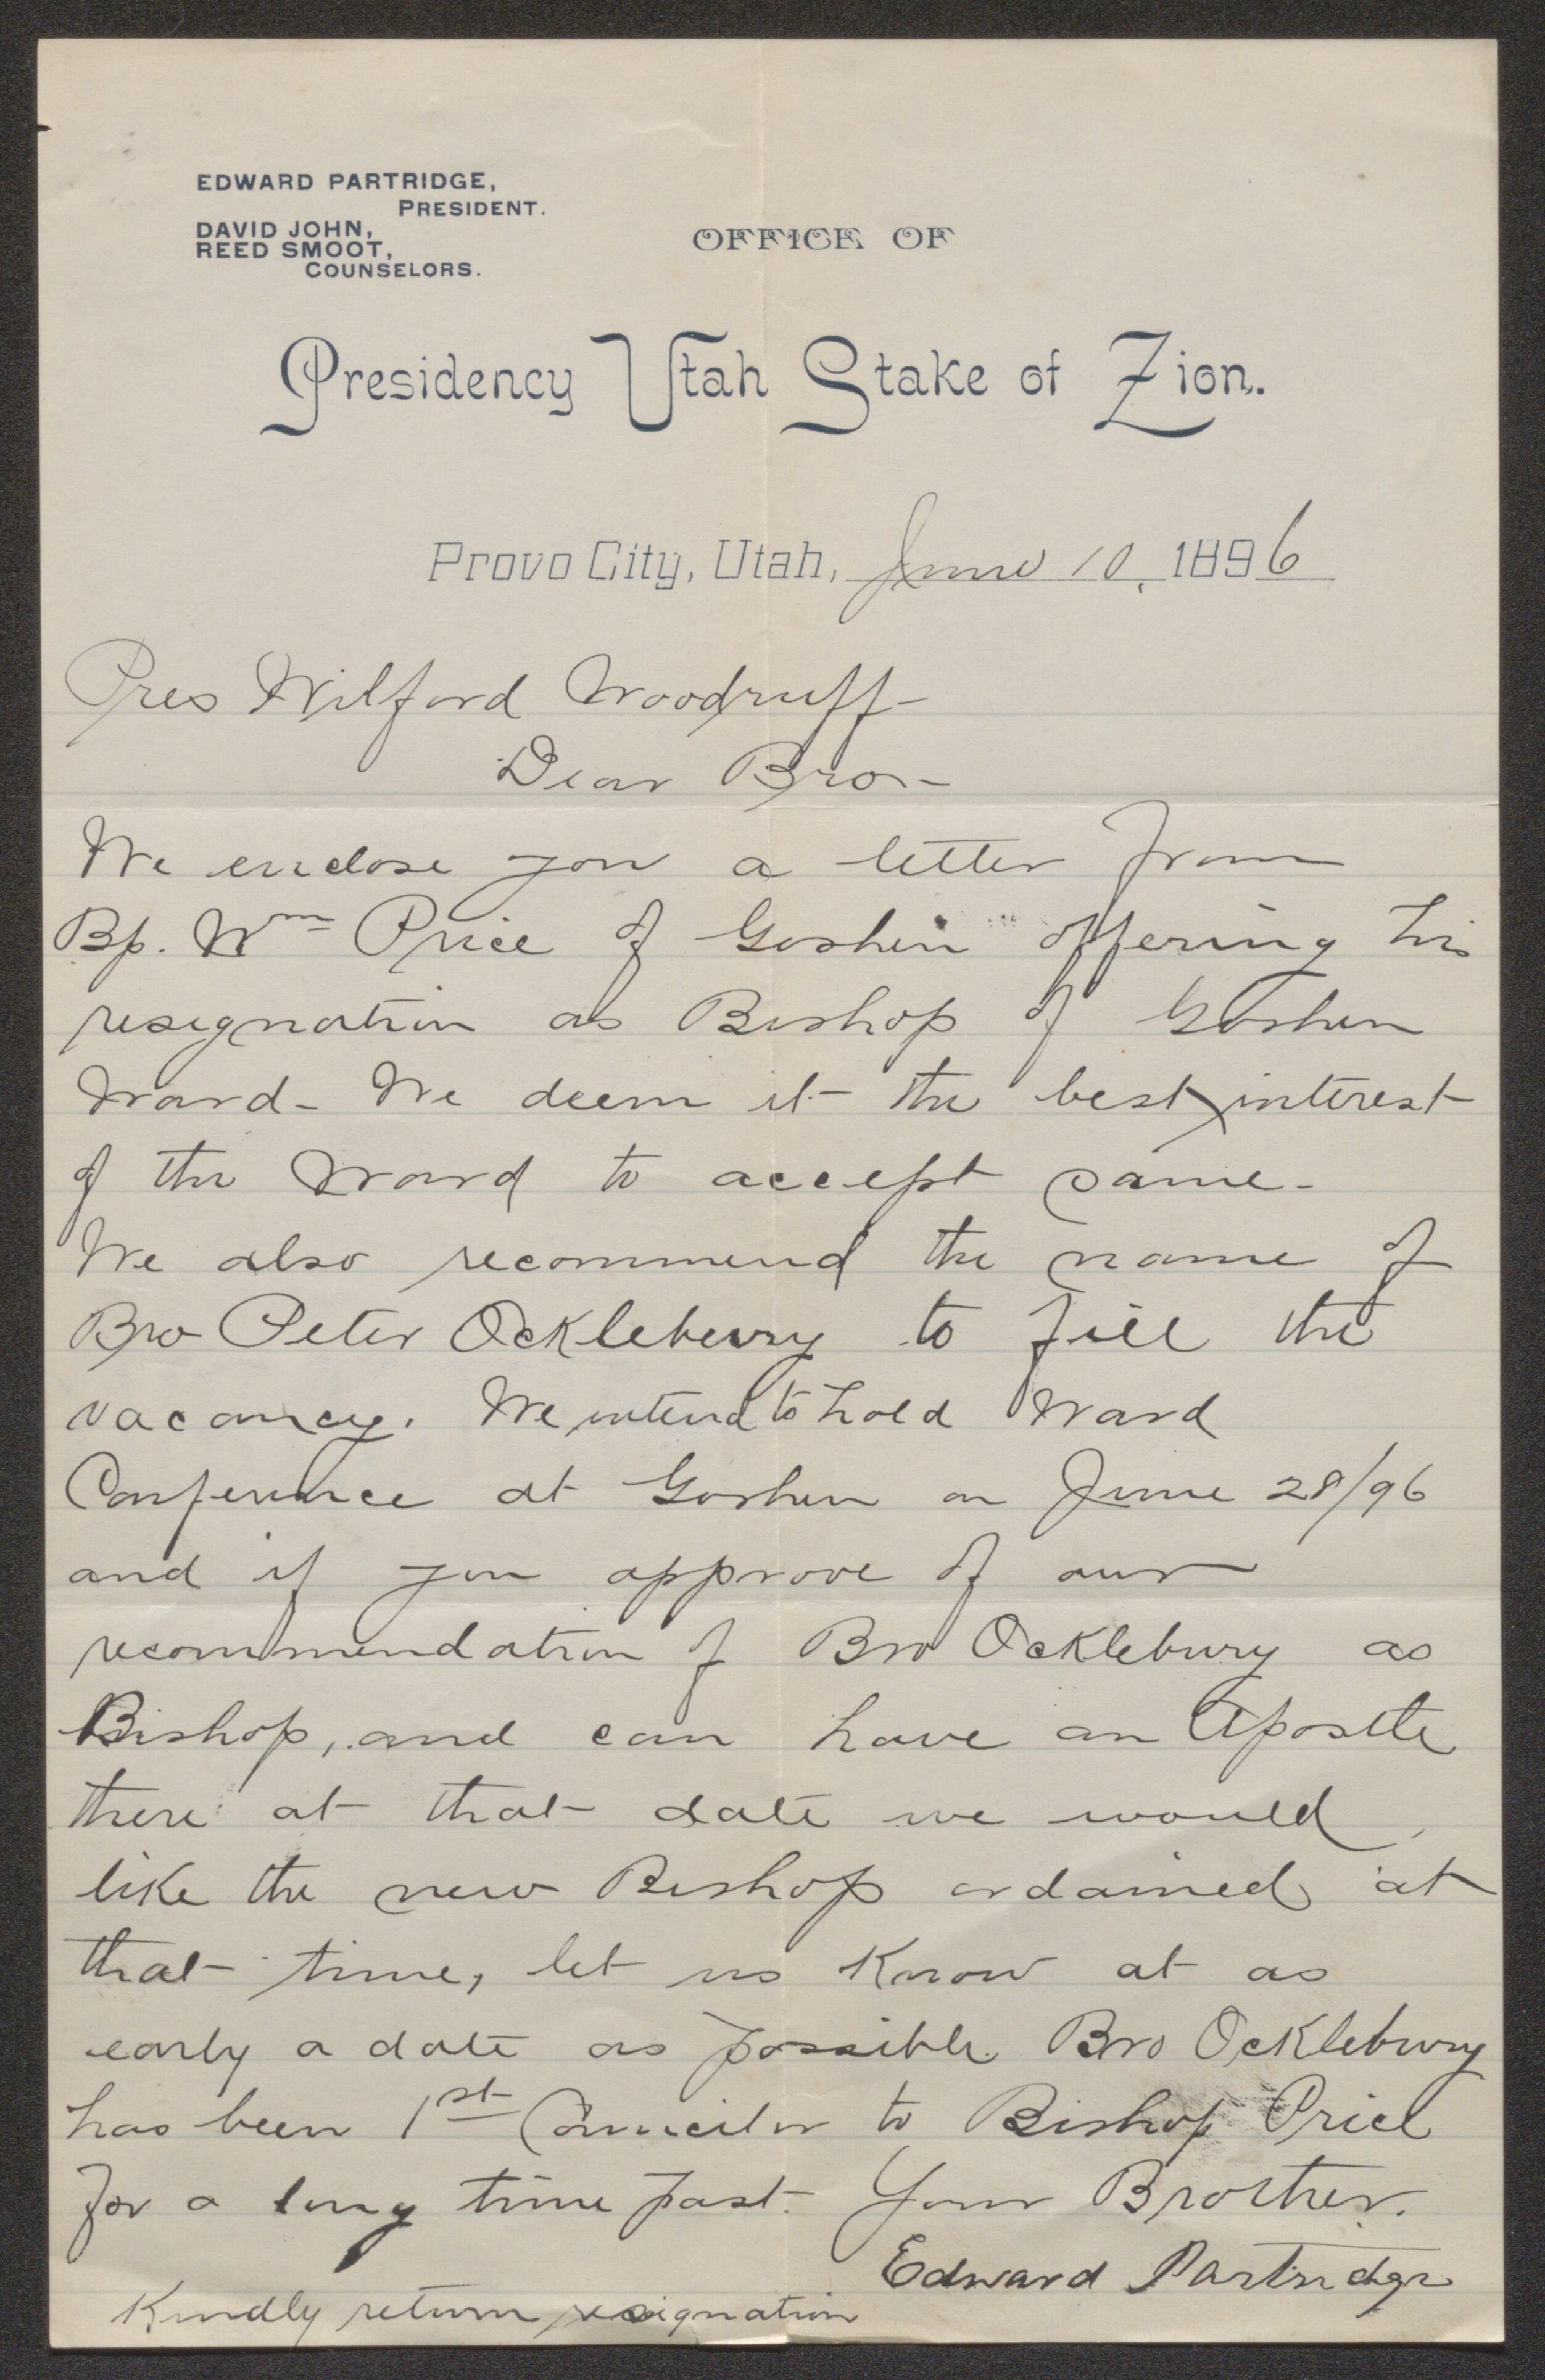 EDWARD PARTRIDGE,
PRESIDENT.
DAVID JOHN,
REED SMOOT,
COUNSELORS.
OFFICE OF
Presidency Utah Stake of Zion.
Provo City, Utah, June 10, 1896
Pres Wilford Woodruff
Dear Bro-
We enclose you a letter from
Bp. Wm Price of Goshen offering his
resignation as Bishop of Goshen
Ward- We deem it the best interest
of the Ward to accept same-
We also recommend the name of
Bro Peter Ockleberry to fill the
vacancy. We intend to hold Ward
Conference at Goshen on June 28/96
and if you approve of our
recommendation of Bro Ocklebury as
Bishop, and can have an Apostle
there at that date we would
like the new Bishop ordained at
that time, let us know at as
early a date as possible. Bro Ocklebury
has been 1st Councilor to Bishop Price
for a long time past. Your Brother.
Edward Partridge
Kindly return resignation